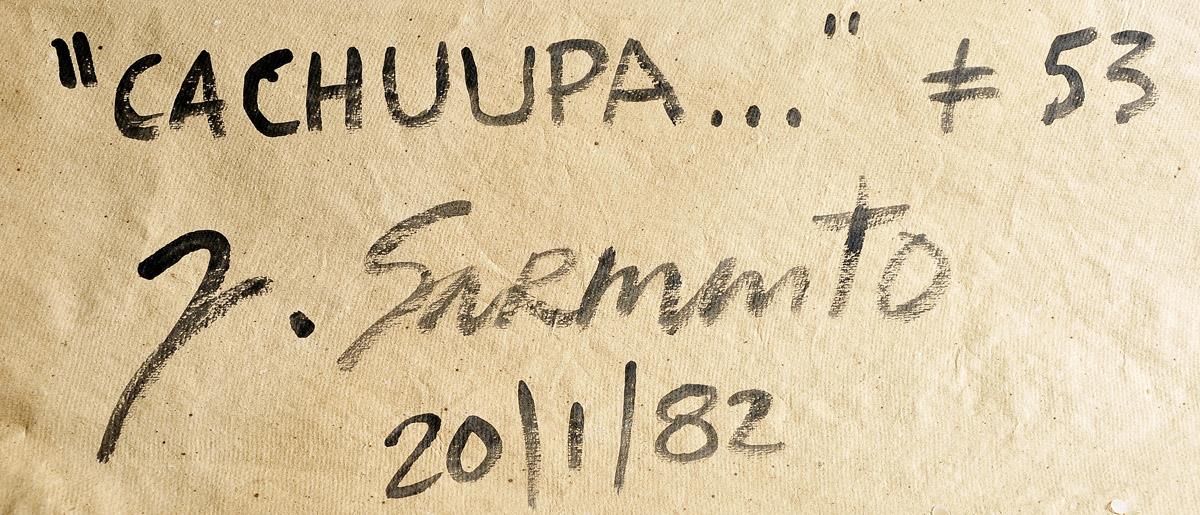 "CACHUUPA..." ≠ 53
J. Sarmento
20/1/82